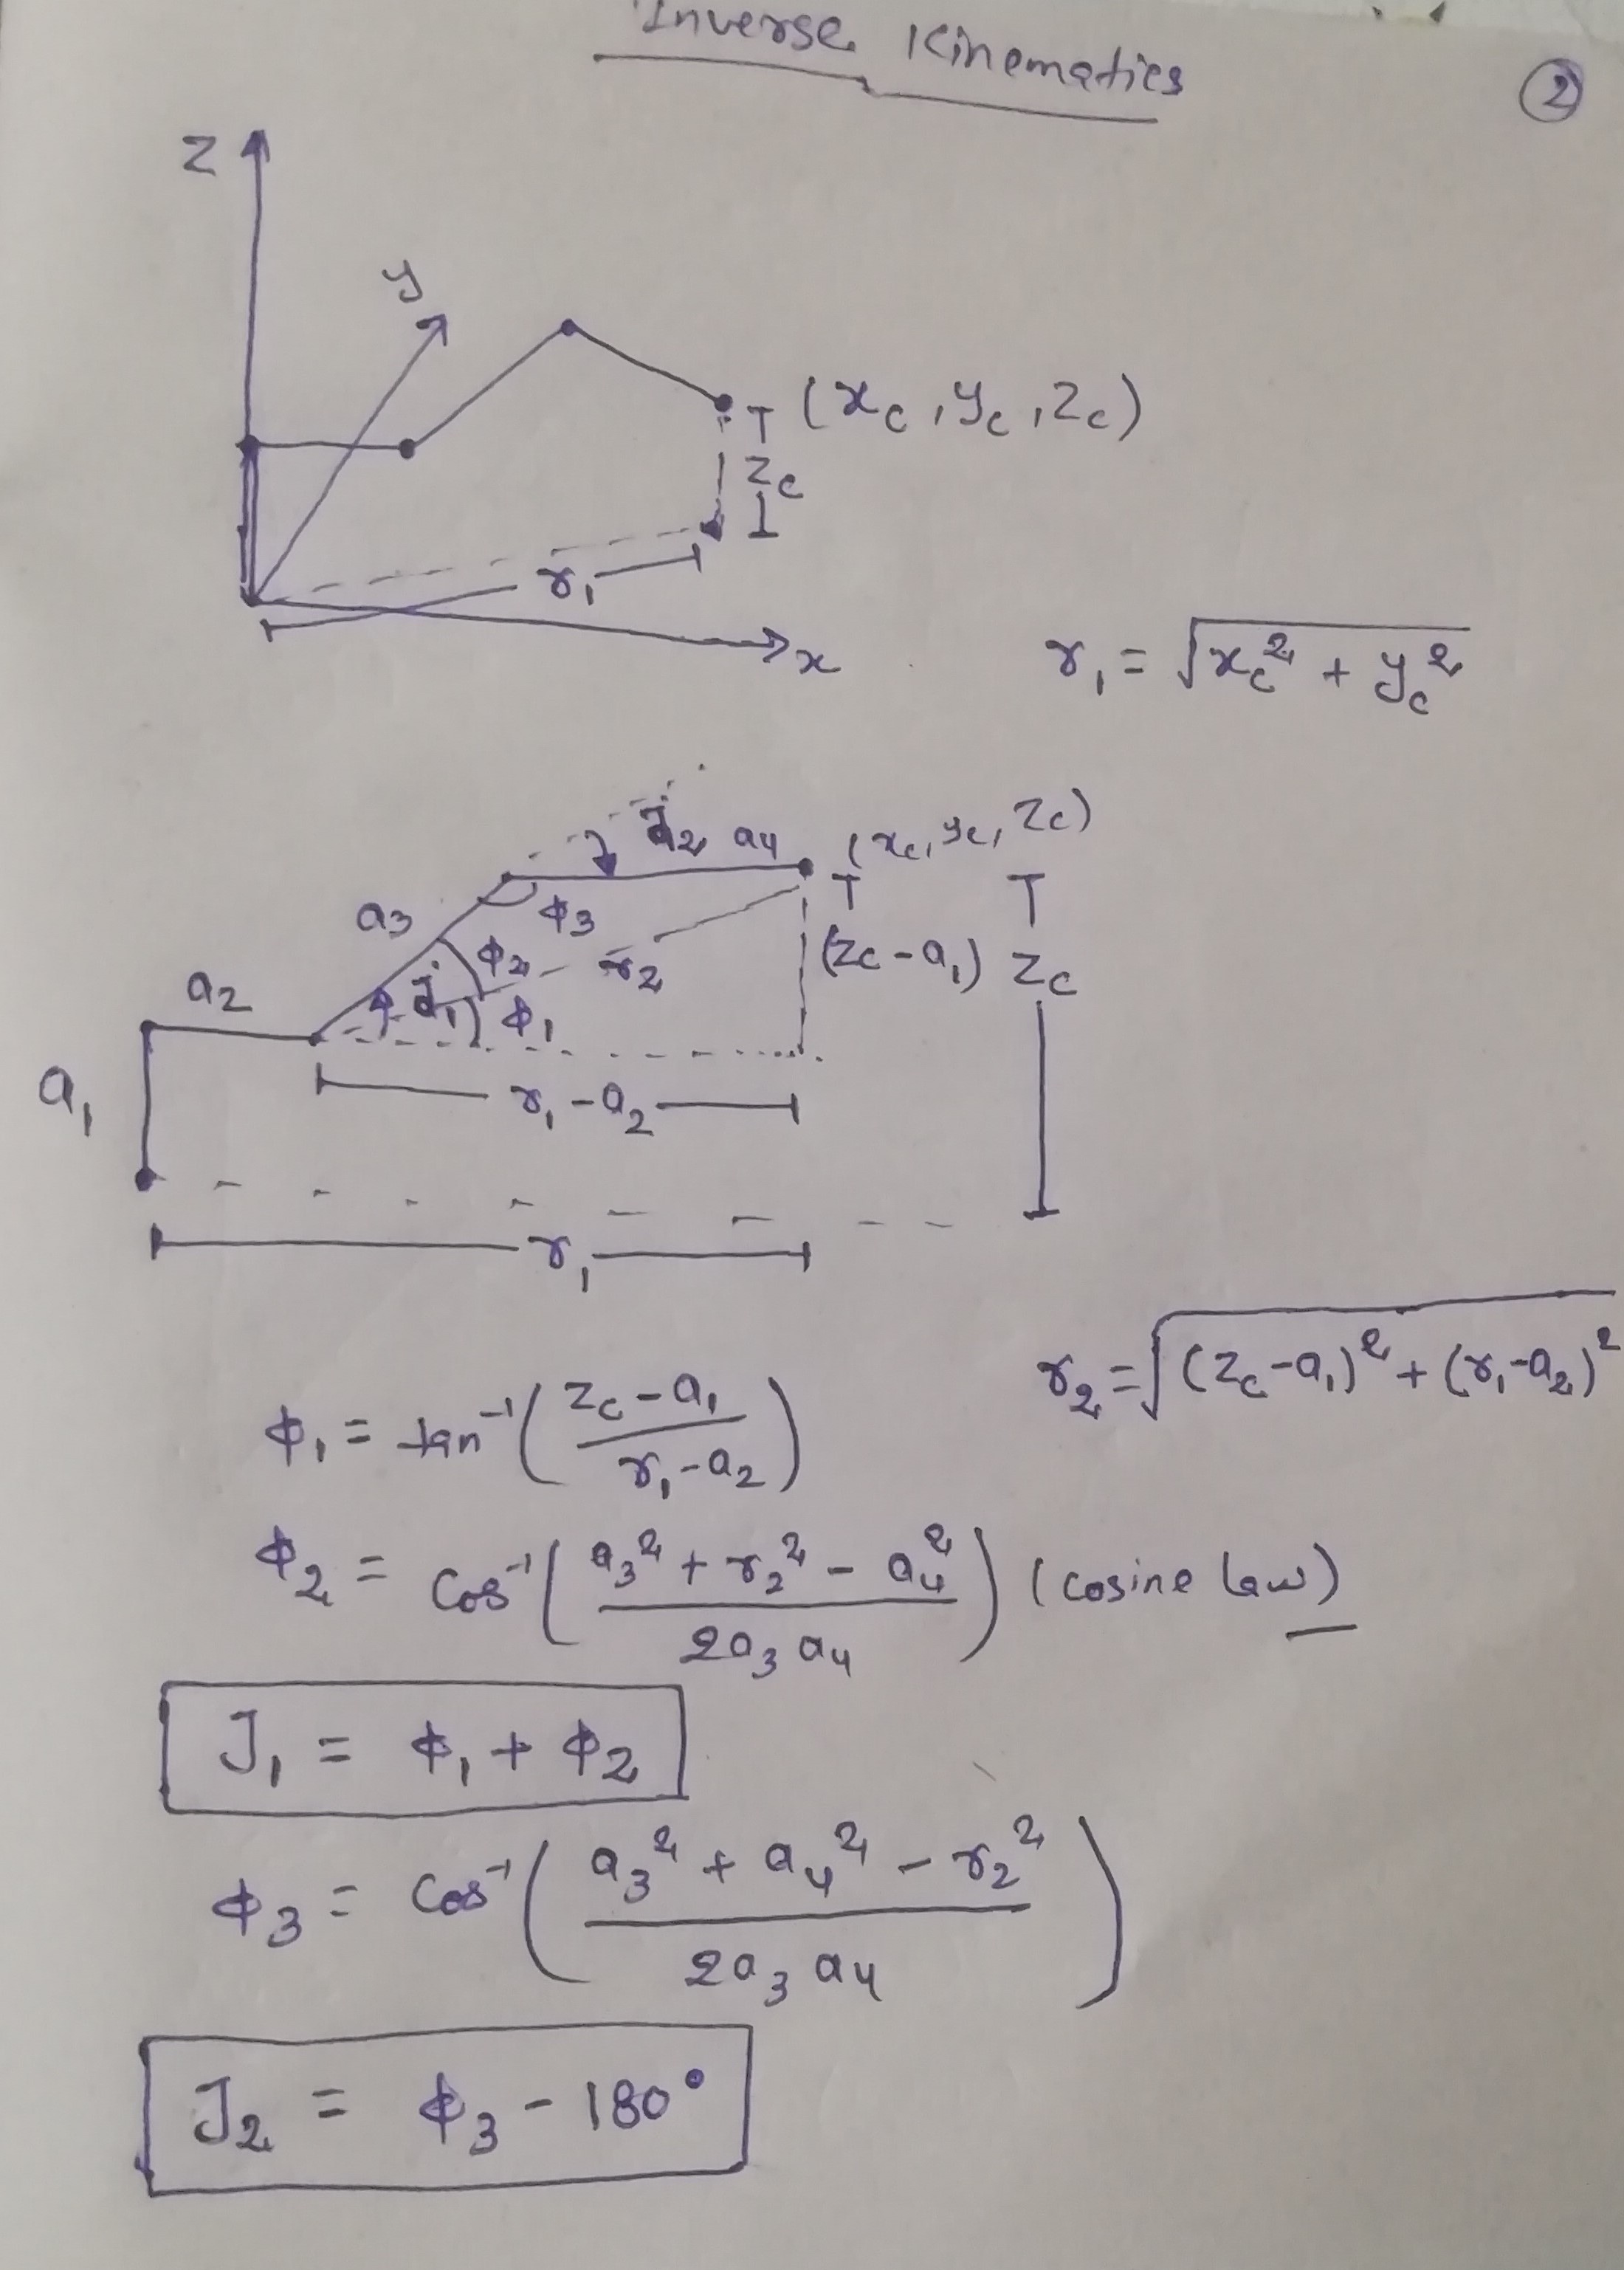 Inverse Kinematics
②
Z
y
T (x_c, y_c, z_c)
z_c
r₁
x
r₁ = √(x_c² + y_c²)
J₂ a₄ (x_c, y_c, z_c)
a₃ φ₃
φ₂ r₂ (z_c - a₁) z_c
a₂ J₁ φ₁
a₁ r₁ - a₂
r₁
r₂ = √((z_c - a₁)² + (r₁ - a₂)²)
φ₁ = tan⁻¹((z_c - a₁) / (r₁ - a₂))
φ₂ = cos⁻¹((a₃² + r₂² - a₄²) / (2a₃a₄)) (cosine law)
J₁ = φ₁ + φ₂
φ₃ = cos⁻¹((a₃² + a₄² - r₂²) / (2a₃a₄))
J₂ = φ₃ - 180°